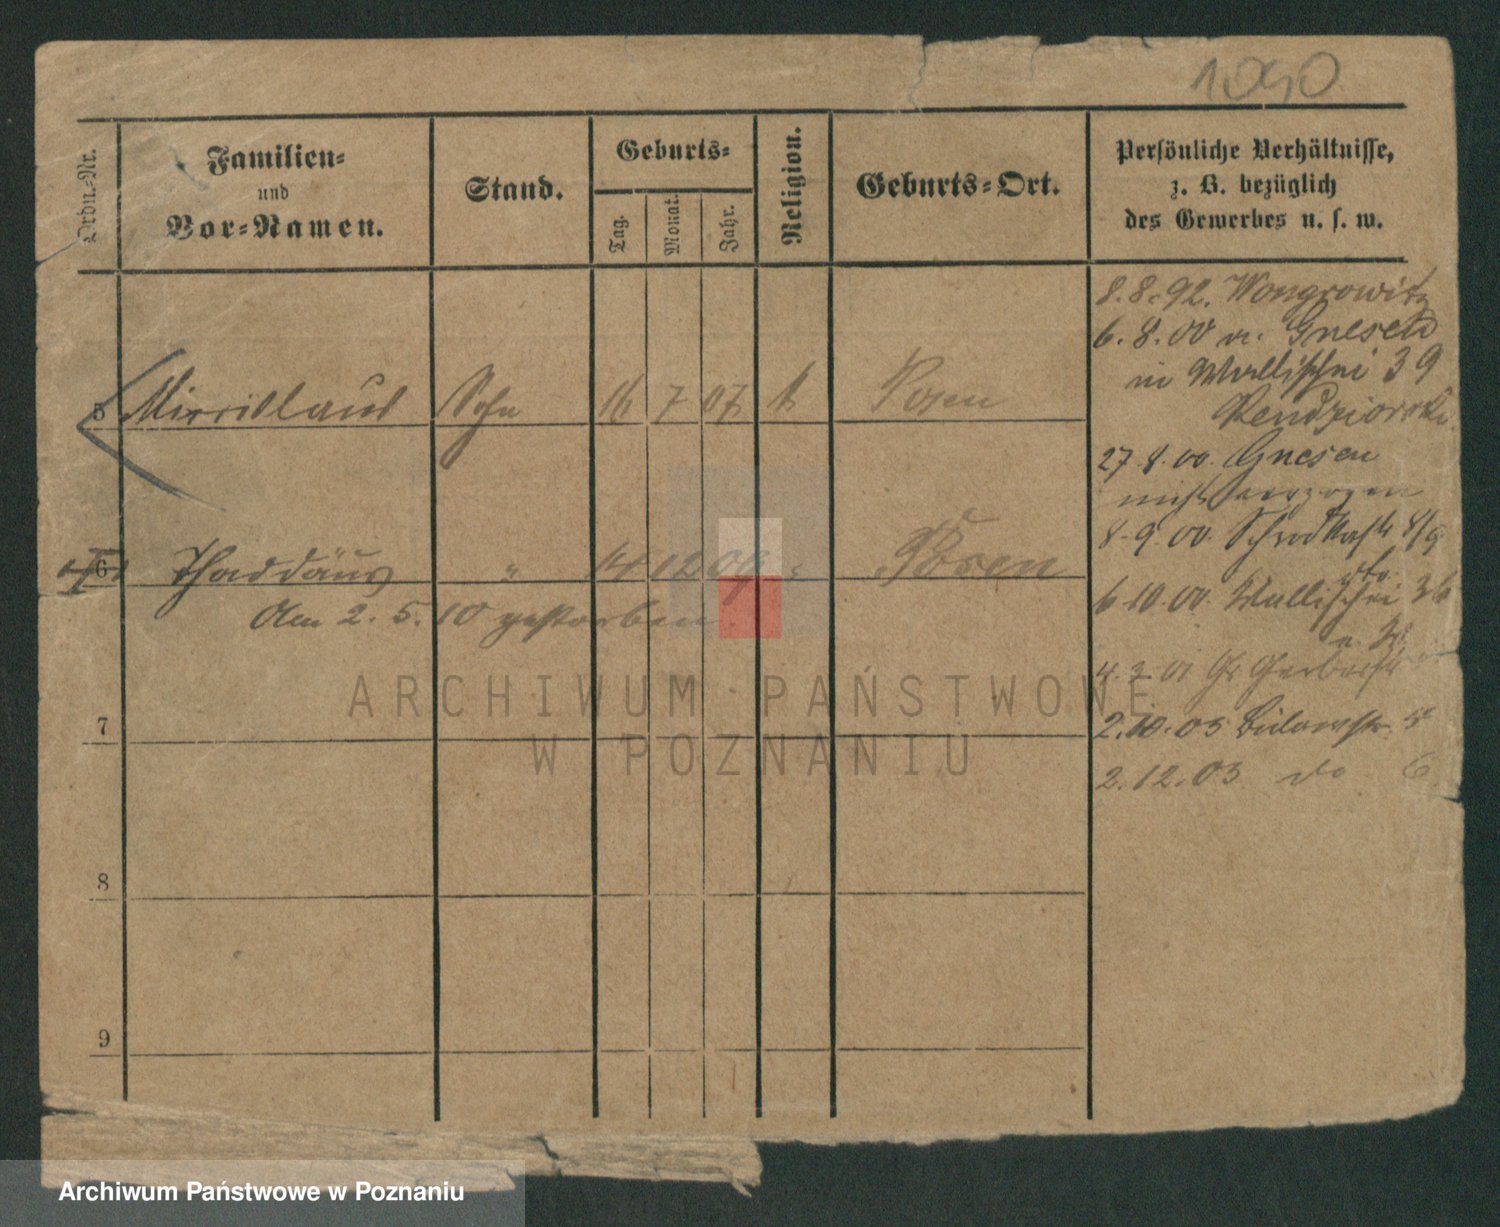 1090
Ordn.-Nr.
Familien-
und
Vor-Namen.
Stand.
Geburts-
Tag.
Monat.
Jahr.
Religion.
Geburts-Ort.
Persönliche Verhältnisse,
z. B. bezüglich
des Gewerbes u. s. w.
5 Sohn 16 7 07 k Posen
6 Thaddäus " 14 12 09 " Posen
Am 2. 5. 10 gestorben
7
8
9
8. 8. 92. Wongrowitz
6. 8. 00 v. Gnesen
in Wallischei 39
Kendziorski
27 8. 00. Gnesen
nicht verzogen
8. 9. 00. 8/9
6. 10. 00. Wallischei 36
4. 3. 01 Gr Gerberstr
2. 10. 03 Bülowstr. 5
2. 12. 03 do 6
ARCHIWUM PAŃSTWOWE
W POZNANIU
Archiwum Państwowe w Poznaniu